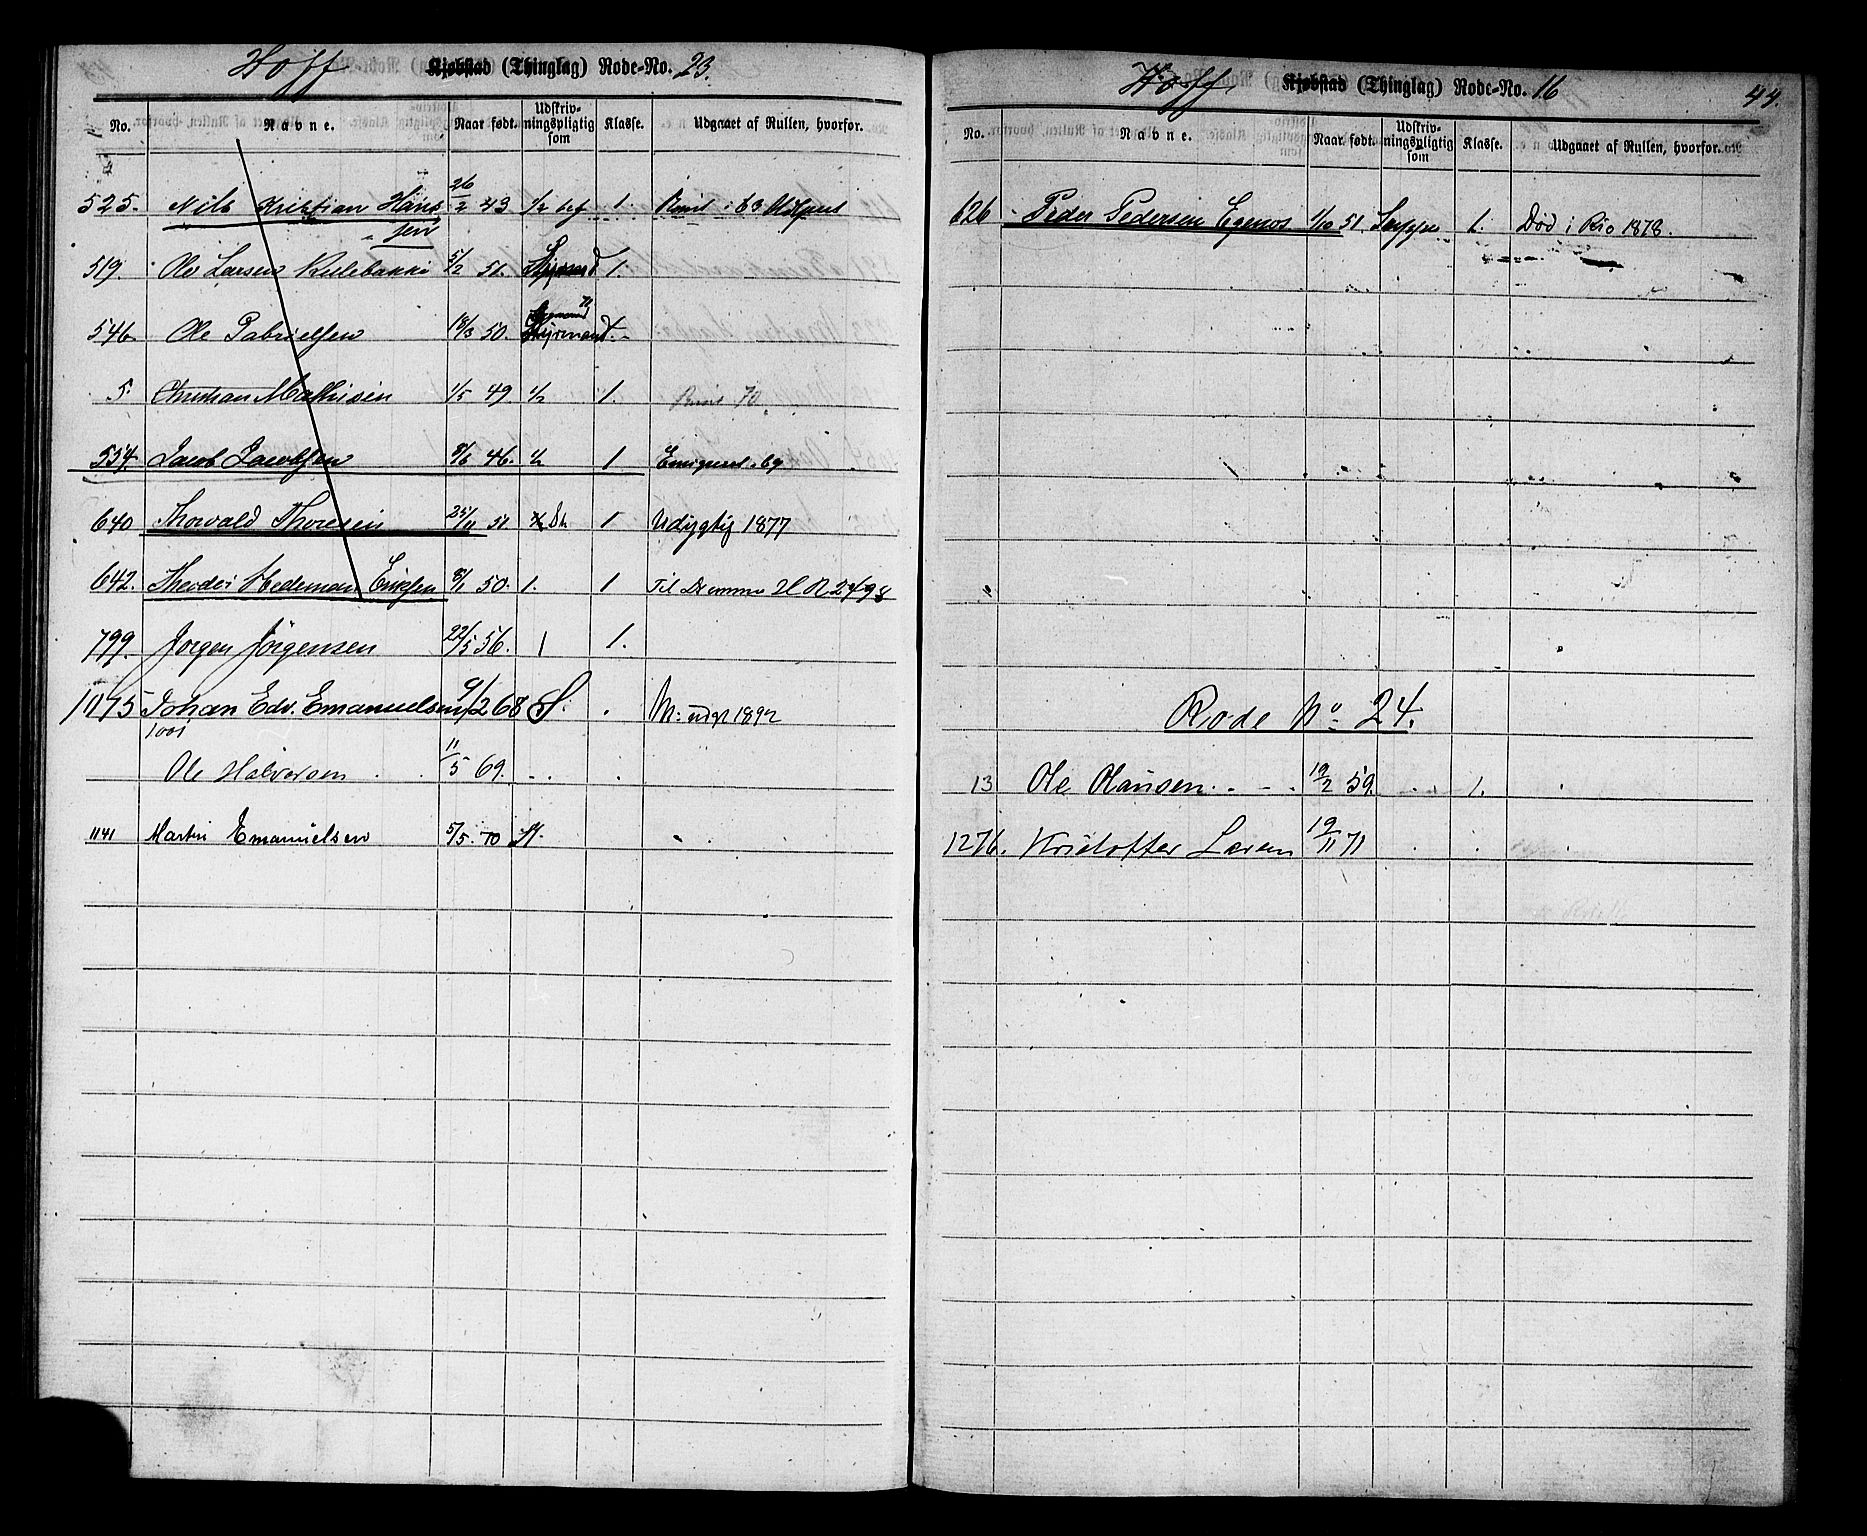 Hoff Kjøbstad (Thinglag) Rode-No. 23.
No. Navne. Naar født. Udskriv-ningspligtig som Klasse. Udgaaet af Rullen, hvorfor.
525. Nils Kristian Hans 26/2 43 1/2 bef. 1.
sen
519. Ole Larsen 5/2 51. Styrmand 1.
Styrmand
546. Ole Gabrielsen 18/3 50. Styrmand.
5. Christian Mathisen 1/5 49. 1/2 1. Rømt 70
554. Jacob Jacobsen 8/6 46. 1/2 1 Emigreret 69
640 Thorvald Thoresen 25/11 51. St. 1 Udygtig 1877
642. Theodor Hedeman Eriksen 8/1 50. 1. 1 Til Drammen H R 2498
799. Jørgen Jörgensen 22/5 56. 1 1.
1075 Johan Edv. Emanuelsen 9/2 68 S. . M: udgt 1892
1001
Ole Halvorsen 11/5 69.
1141 Martin Emanuelsen 5/5. 70 M.
Hoff Kjøbstad (Thinglag) Rode-No. 16 44.
No. Navne. Naar født. Udskriv-ningspligtig som Klasse. Udgaaet af Rullen, hvorfor.
626 Peder Pedersen Egenos 1/10 51 1. Død i Rio 1878.
Rode No. 24.
13 Ole Olausen 19/2 59. 1.
1276. Kristoffer Larsen 19/11 71